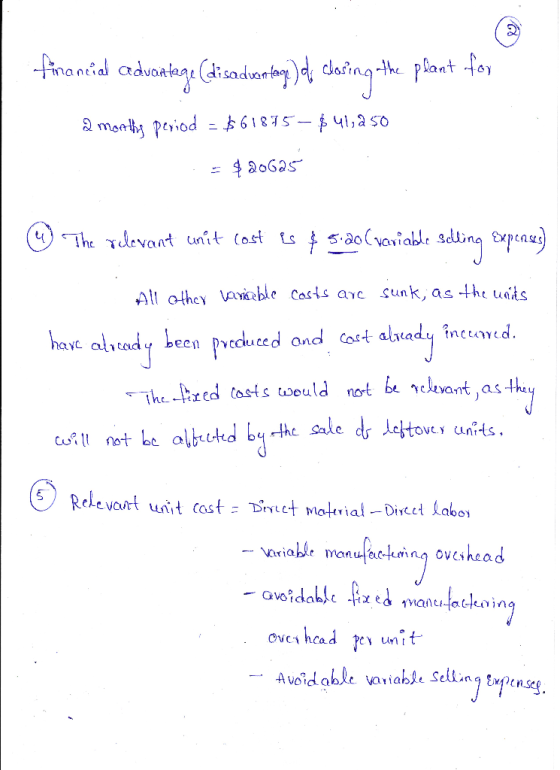 2
financial advantage (disadvantage) of closing the plant for
2 months period = $61875 - $41,250
= $20625
4 The relevant unit cost is $5.20 (variable selling expenses)
All other variable costs are sunk, as the units
have already been produced and cost already incurred.
The fixed costs would not be relevant, as they
will not be affected by the sale of leftover units.
5 Relevant unit cost = Direct material - Direct labor
- variable manufacturing overhead
- avoidable fixed manufacturing
overhead per unit
- Avoidable variable selling expenses.